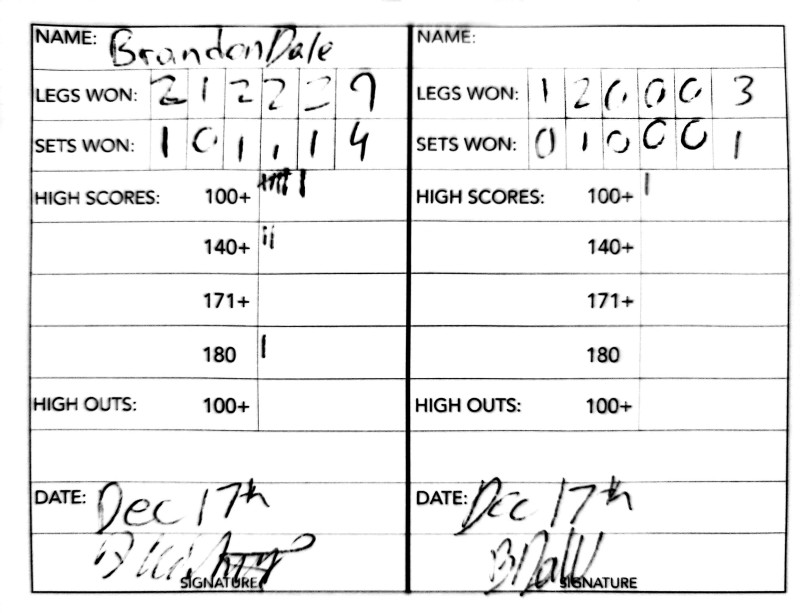 NAME: Brandon Dale
LEGS WON: 2 1 2 2 2 9
SETS WON: 1 0 1 1 1 4
HIGH SCORES: 100+ 卌 I
140+ II
171+
180 I
HIGH OUTS: 100+
DATE: Dec 17th
SIGNATURE
NAME:
LEGS WON: 1 2 0 0 0 3
SETS WON: 0 1 0 0 0 1
HIGH SCORES: 100+ I
140+
171+
180
HIGH OUTS: 100+
DATE: Dec 17th
SIGNATURE